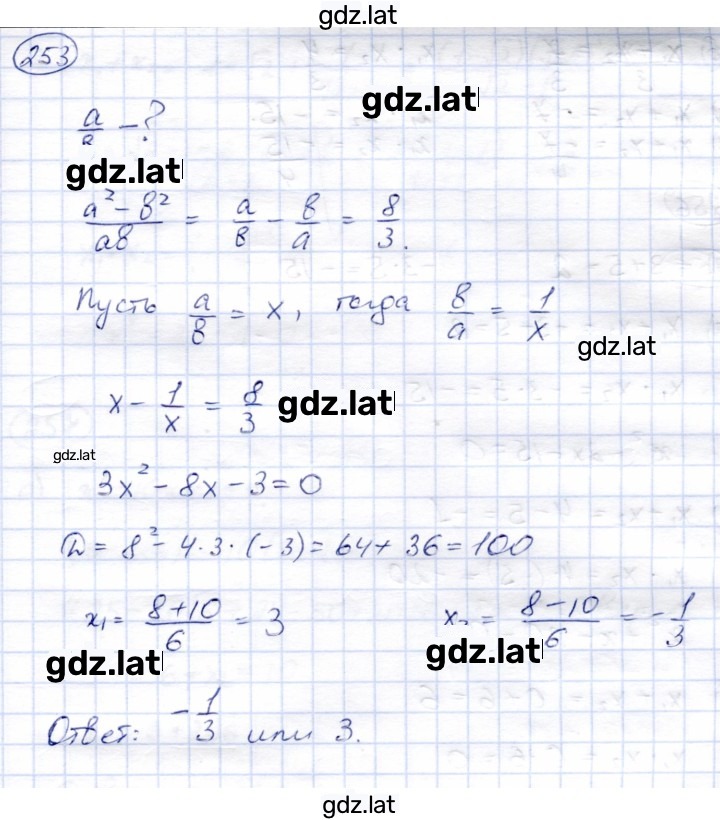 gdz.lat
253
a/в - ?
gdz.lat
gdz.lat
(a² - в²)/(aв) = a/в - в/a = 8/3.
Пусть a/в = x, тогда в/a = 1/x
gdz.lat
x - 1/x = 8/3 gdz.lat
gdz.lat
3x² - 8x - 3 = 0
D = 8² - 4·3·(-3) = 64 + 36 = 100
x₁ = (8+10)/6 = 3 x₂ = (8-10)/6 = -1/3
gdz.lat gdz.lat
Ответ: -1/3 или 3.
gdz.lat